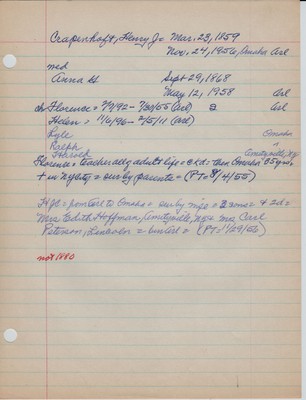 Crapenhoft, Henry J = Mar. 23, 1859
Nov. 24, 1956, Omaha Arl
md
Anna H Sept 29, 1868
May 12, 1958 Arl
ch Florence = 7/9/92 - 7/30/55 (Arl) Arl
Helen = 11/6/96 - 2/5/11 (Arl)
Lyle Omaha
Ralph
Harold Amityville, NY
Florence = teacher all adult life = c k d = then Omaha 35 yrs.
+ in NYcity = sur by parents = (PT = 8/4/55)
HJC = pion tail to Omaha = sur by nife = 3 sons = + 2 d =
Mrs Edith Hoffman, Amityville, NY + Mrs Carl
Peterson, Lincoln = buried = (PT = 11/29/56)
not 1880